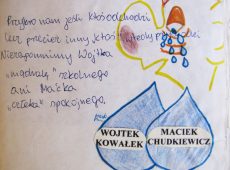 Przykro nam jeśli ktoś odchodzi
Lecz przecież inny ktoś wtedy przychodzi
Niezapomnimy Wojtka
szkolnego
ani Maćka
spokojnego.
WOJTEK
KOWAŁEK
MACIEK
CHUDKIEWICZ